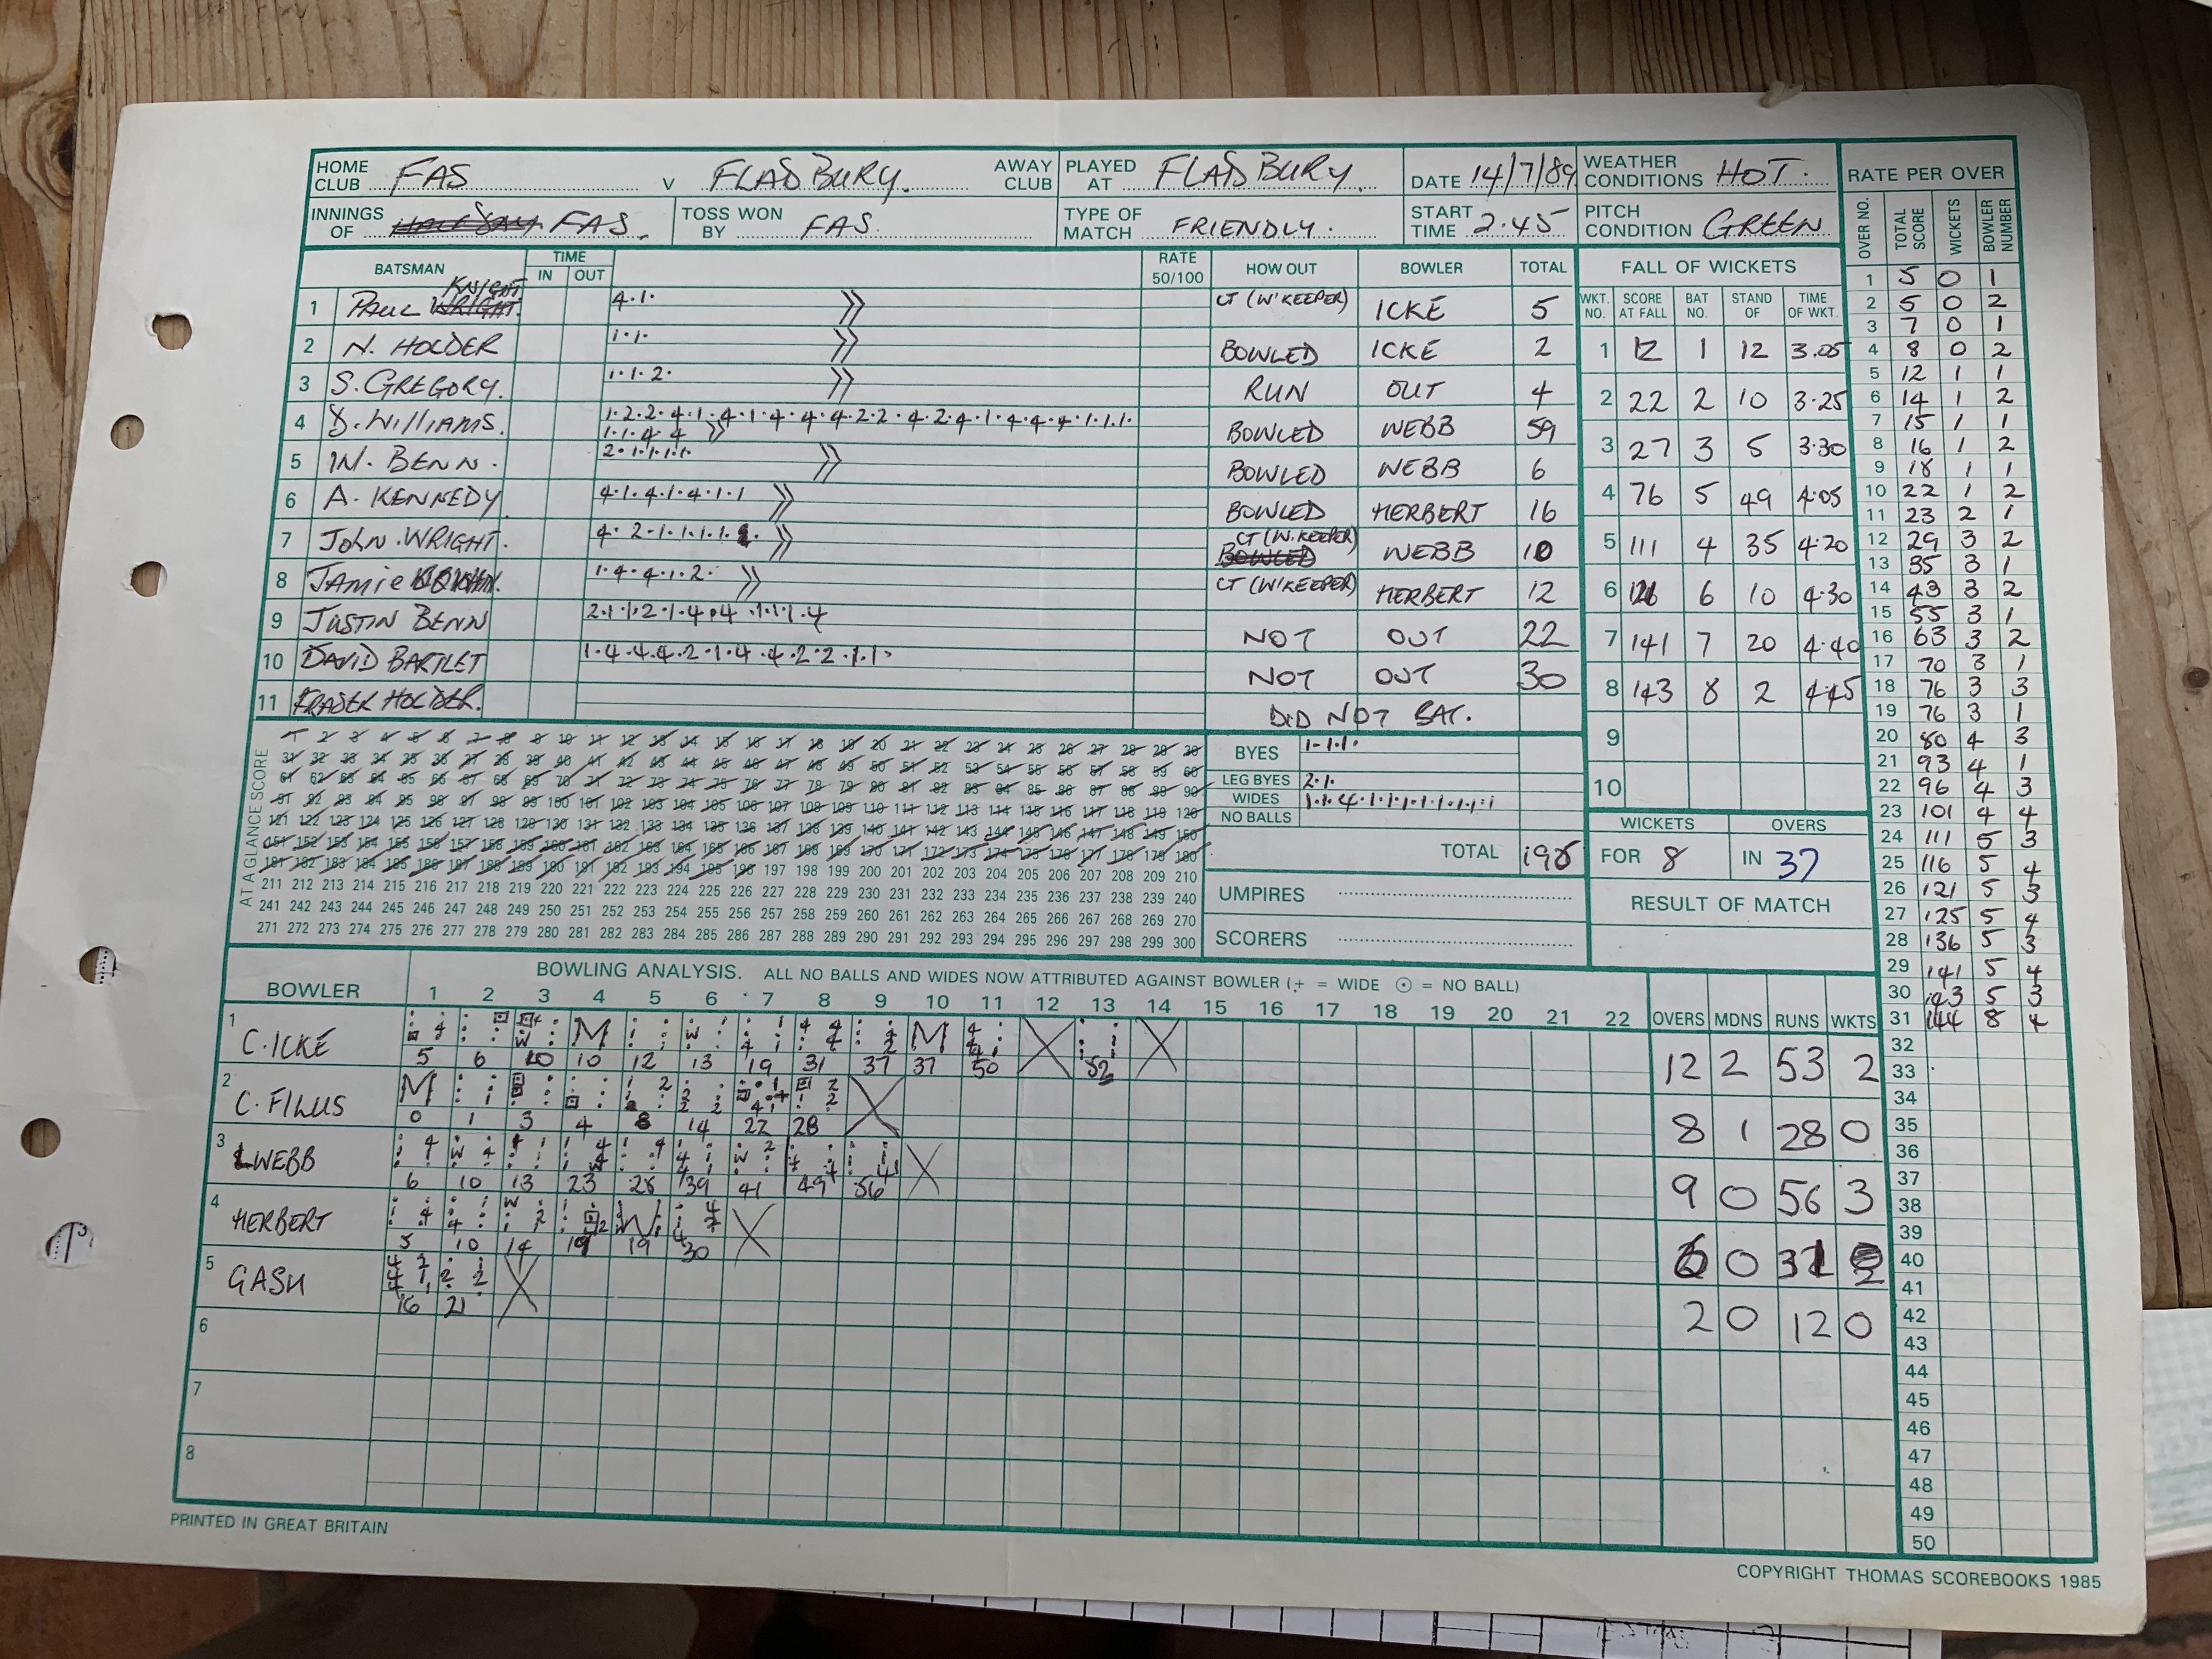 HOME CLUB FAS V FLADBURY. AWAY CLUB PLAYED AT FLADBURY. DATE 14/7/89 WEATHER CONDITIONS HOT. RATE PER OVER
INNINGS OF FAS. TOSS WON BY FAS. TYPE OF MATCH FRIENDLY. START TIME 2.45 PITCH CONDITION GREEN
OVER NO. TOTAL SCORE WICKETS BOWLER NUMBER
BATSMAN TIME IN OUT RATE 50/100 HOW OUT BOWLER TOTAL
1 PAUL KNIGHT 4.1. CT (W'KEEPER) ICKE 5
2 N. HOLDER 1.1. BOWLED ICKE 2
3 S. GREGORY. 1.1.2. RUN OUT 4
4 D. WILLIAMS. 1.2.2.4.1.4.1.4.4.4.2.2.4.2.4.1.4.4.4.1.1.1.
1.1.4.4 BOWLED WEBB 59
5 W. BENN. 2.1.1.1.1. BOWLED WEBB 6
6 A. KENNEDY 4.1.4.1.4.1.1 BOWLED HERBERT 16
7 JOHN WRIGHT. 4.2.1.1.1.1. CT (W.KEEPER) WEBB 10
8 JAMIE 1.4.4.1.2. CT (W'KEEPER) HERBERT 12
9 JUSTIN BENN 2.1.1.2.1.4.4.1.1.1.4 NOT OUT 22
10 DAVID BARTLET 1.4.4.4.2.1.4.4.2.2.1.1. NOT OUT 30
11 FRASER HOLDER. DID NOT BAT.
FALL OF WICKETS
WKT. NO. SCORE AT FALL BAT NO. STAND OF TIME OF WKT.
1 12 1 12 3.05
2 22 2 10 3.25
3 27 3 5 3.30
4 76 5 49 4.05
5 111 4 35 4.20
6 121 6 10 4.30
7 141 7 20 4.40
8 143 8 2 4.45
9
10
AT A GLANCE SCORE
1 2 3 4 5 6 7 8 9 10 11 12 13 14 15 16 17 18 19 20 21 22 23 24 25 26 27 28 29 30
31 32 33 34 35 36 37 38 39 40 41 42 43 44 45 46 47 48 49 50 51 52 53 54 55 56 57 58 59 60
61 62 63 64 65 66 67 68 69 70 71 72 73 74 75 76 77 78 79 80 81 82 83 84 85 86 87 88 89 90
91 92 93 94 95 96 97 98 99 100 101 102 103 104 105 106 107 108 109 110 111 112 113 114 115 116 117 118 119 120
121 122 123 124 125 126 127 128 129 130 131 132 133 134 135 136 137 138 139 140 141 142 143 144 145 146 147 148 149 150
151 152 153 154 155 156 157 158 159 160 161 162 163 164 165 166 167 168 169 170 171 172 173 174 175 176 177 178 179 180
181 182 183 184 185 186 187 188 189 190 191 192 193 194 195 196 197 198 199 200 201 202 203 204 205 206 207 208 209 210
211 212 213 214 215 216 217 218 219 220 221 222 223 224 225 226 227 228 229 230 231 232 233 234 235 236 237 238 239 240
241 242 243 244 245 246 247 248 249 250 251 252 253 254 255 256 257 258 259 260 261 262 263 264 265 266 267 268 269 270
271 272 273 274 275 276 277 278 279 280 281 282 283 284 285 286 287 288 289 290 291 292 293 294 295 296 297 298 299 300
BYES 1.1.1.
LEG BYES 2.1.
WIDES 1.1.4.1.1.1.1.1.1.1.1
NO BALLS
TOTAL
UMPIRES
SCORERS
WICKETS OVERS
FOR 8 IN 37
RESULT OF MATCH
BOWLING ANALYSIS. ALL NO BALLS AND WIDES NOW ATTRIBUTED AGAINST BOWLER (+ = WIDE ⊙ = NO BALL)
BOWLER 1 2 3 4 5 6 7 8 9 10 11 12 13 14 15 16 17 18 19 20 21 22 OVERS MDNS RUNS WKTS
1 C. ICKE M M
5 6 10 10 12 13 19 31 37 37 50 52 12 2 53 2
2 C. FILUS M
0 1 3 4 8 14 22 28 8 1 28 0
3 WEBB
6 10 13 23 28 39 41 49 56 9 0 56 3
4 HERBERT
5 10 14 19 19 30 6 0 31 2
5 GASH
16 21 2 0 12 0
6
7
8
1 5 0 1
2 5 0 2
3 7 0 1
4 8 0 2
5 12 1 1
6 14 1 2
7 15 1 1
8 16 1 2
9 18 1 1
10 22 1 2
11 23 2 1
12 29 3 2
13 35 3 1
14 43 3 2
15 55 3 1
16 63 3 2
17 70 3 1
18 76 3 3
19 76 3 1
20 80 4 3
21 93 4 1
22 96 4 3
23 101 4 4
24 111 5 3
25 116 5 4
26 121 5 3
27 125 5 4
28 136 5 3
29 141 5 4
30 143 5 3
31 144 8 4
32
33
34
35
36
37
38
39
40
41
42
43
44
45
46
47
48
49
50
PRINTED IN GREAT BRITAIN
COPYRIGHT THOMAS SCOREBOOKS 1985